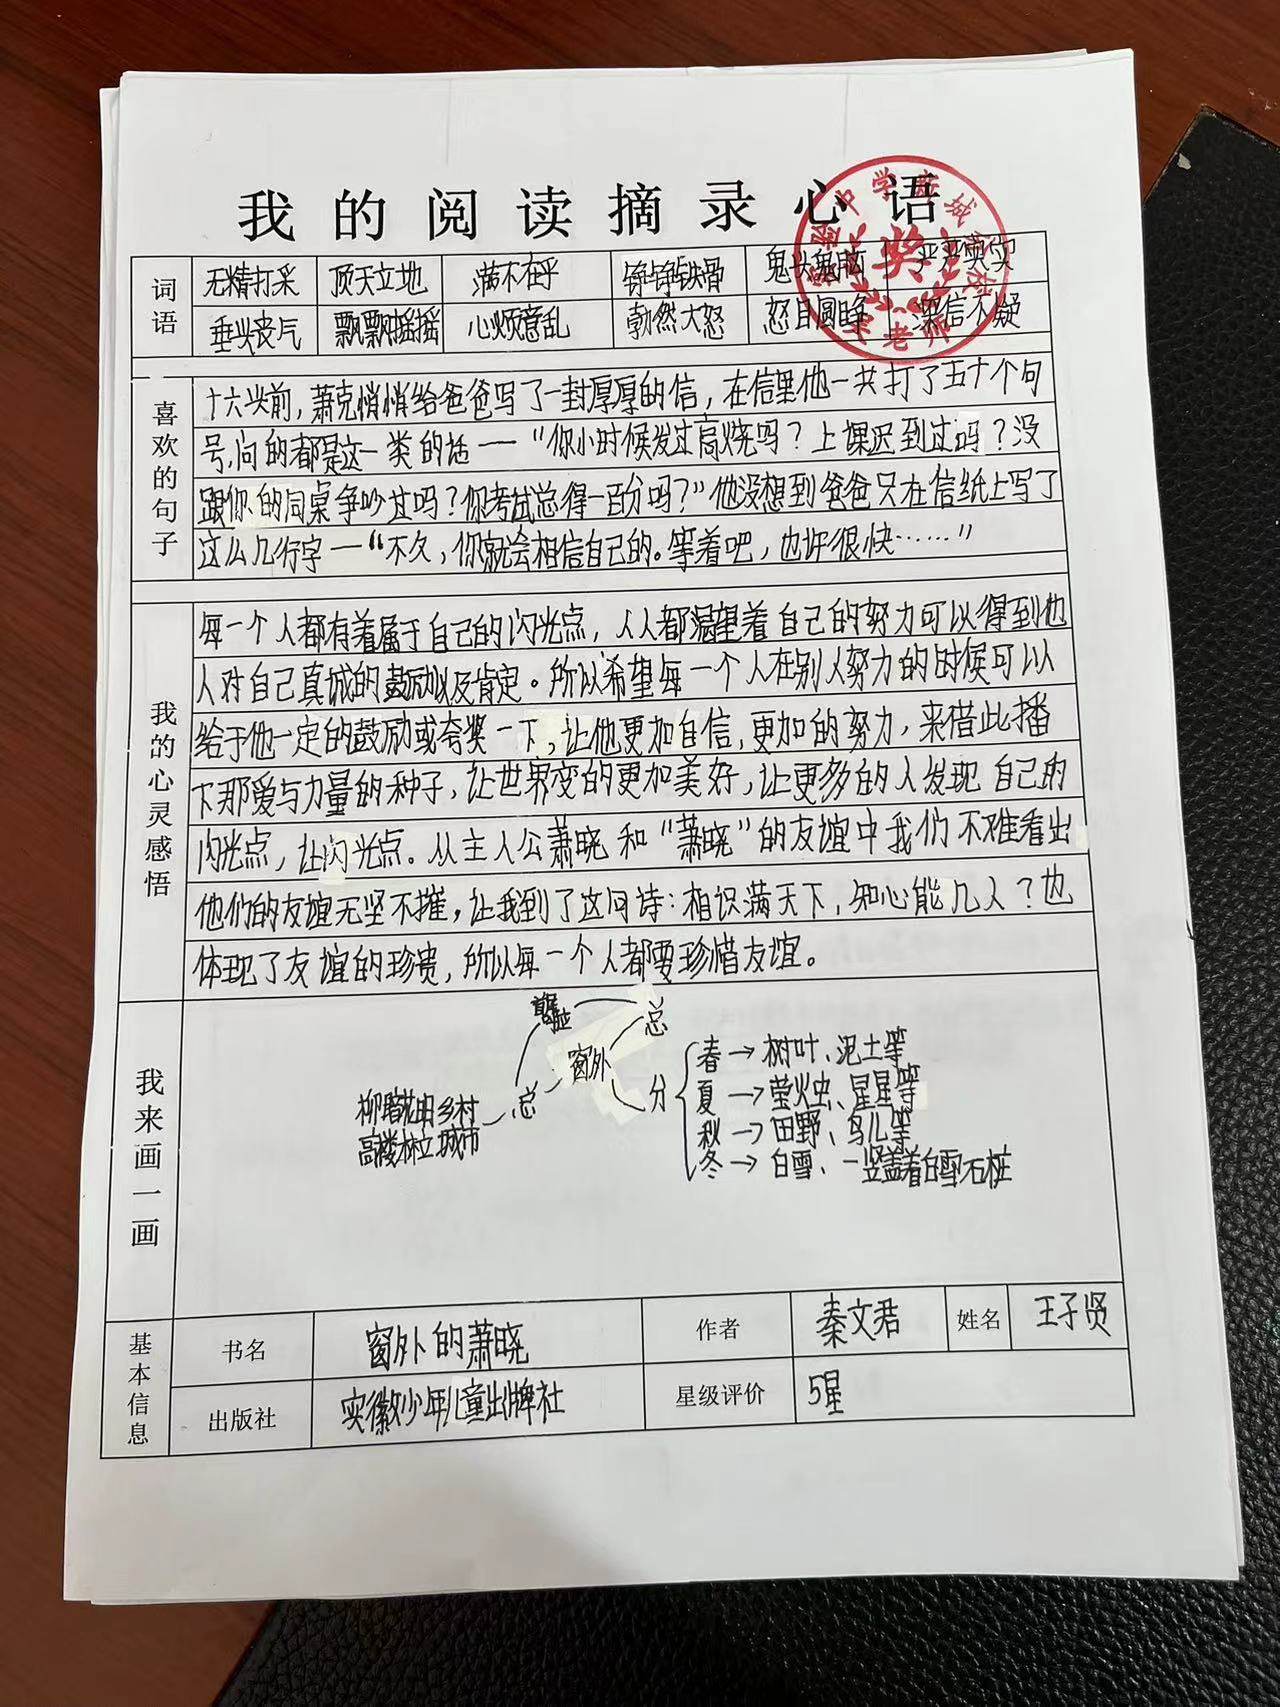 我的阅读摘录心语
词语 无精打采 顶天立地 满不在乎 铮铮铁骨 鬼头鬼脑 严严实实
垂头丧气 飘飘摇摇 心烦意乱 勃然大怒 怒目圆睁 深信不疑
实验中学新城 校
奖
老师
喜欢的句子
十六头前，萧克悄悄给爸爸写了一封厚厚的信，在信里他一共打了五十个句
号，问的都是这一类的话——“你小时候发过高烧吗？上课迟到过吗？没
跟你的同桌争吵过吗？你考试总得一百分吗？”他没想到爸爸只在信纸上写了
这么几行字—“不久，你就会相信自己的。等着吧，也许很快……”
我的心灵感悟
每一个人都有着属于自己的闪光点，人人都渴望着自己的努力可以得到他
人对自己真诚的鼓励以及肯定。所以希望每一个人在别人努力的时候可以
给于他一定的鼓励或夸奖一下，让他更加自信，更加的努力，来借此播
下那爱与力量的种子，让世界变的更加美好，让更多的人发现自己的
闪光点，让闪光点。从主人公萧晓和“萧晓”的友谊中我们不难看出
他们的友谊无坚不摧，让我到了这问诗：相识满天下，知心能几人？也
体现了友谊的珍贵，所以每一个人都要珍惜友谊。
我来画一画
总
窗外
春→树叶、泥土等
夏→萤火虫、星星等
柳暗花明乡村 总 分
秋→田野、鸟儿等
高楼林立城市
冬→白雪、一竖盖着白雪石桩
基本信息
书名 窗外的萧晓 作者 秦文君 姓名 王子贤
出版社 安徽少年儿童出牌社 星级评价 5星